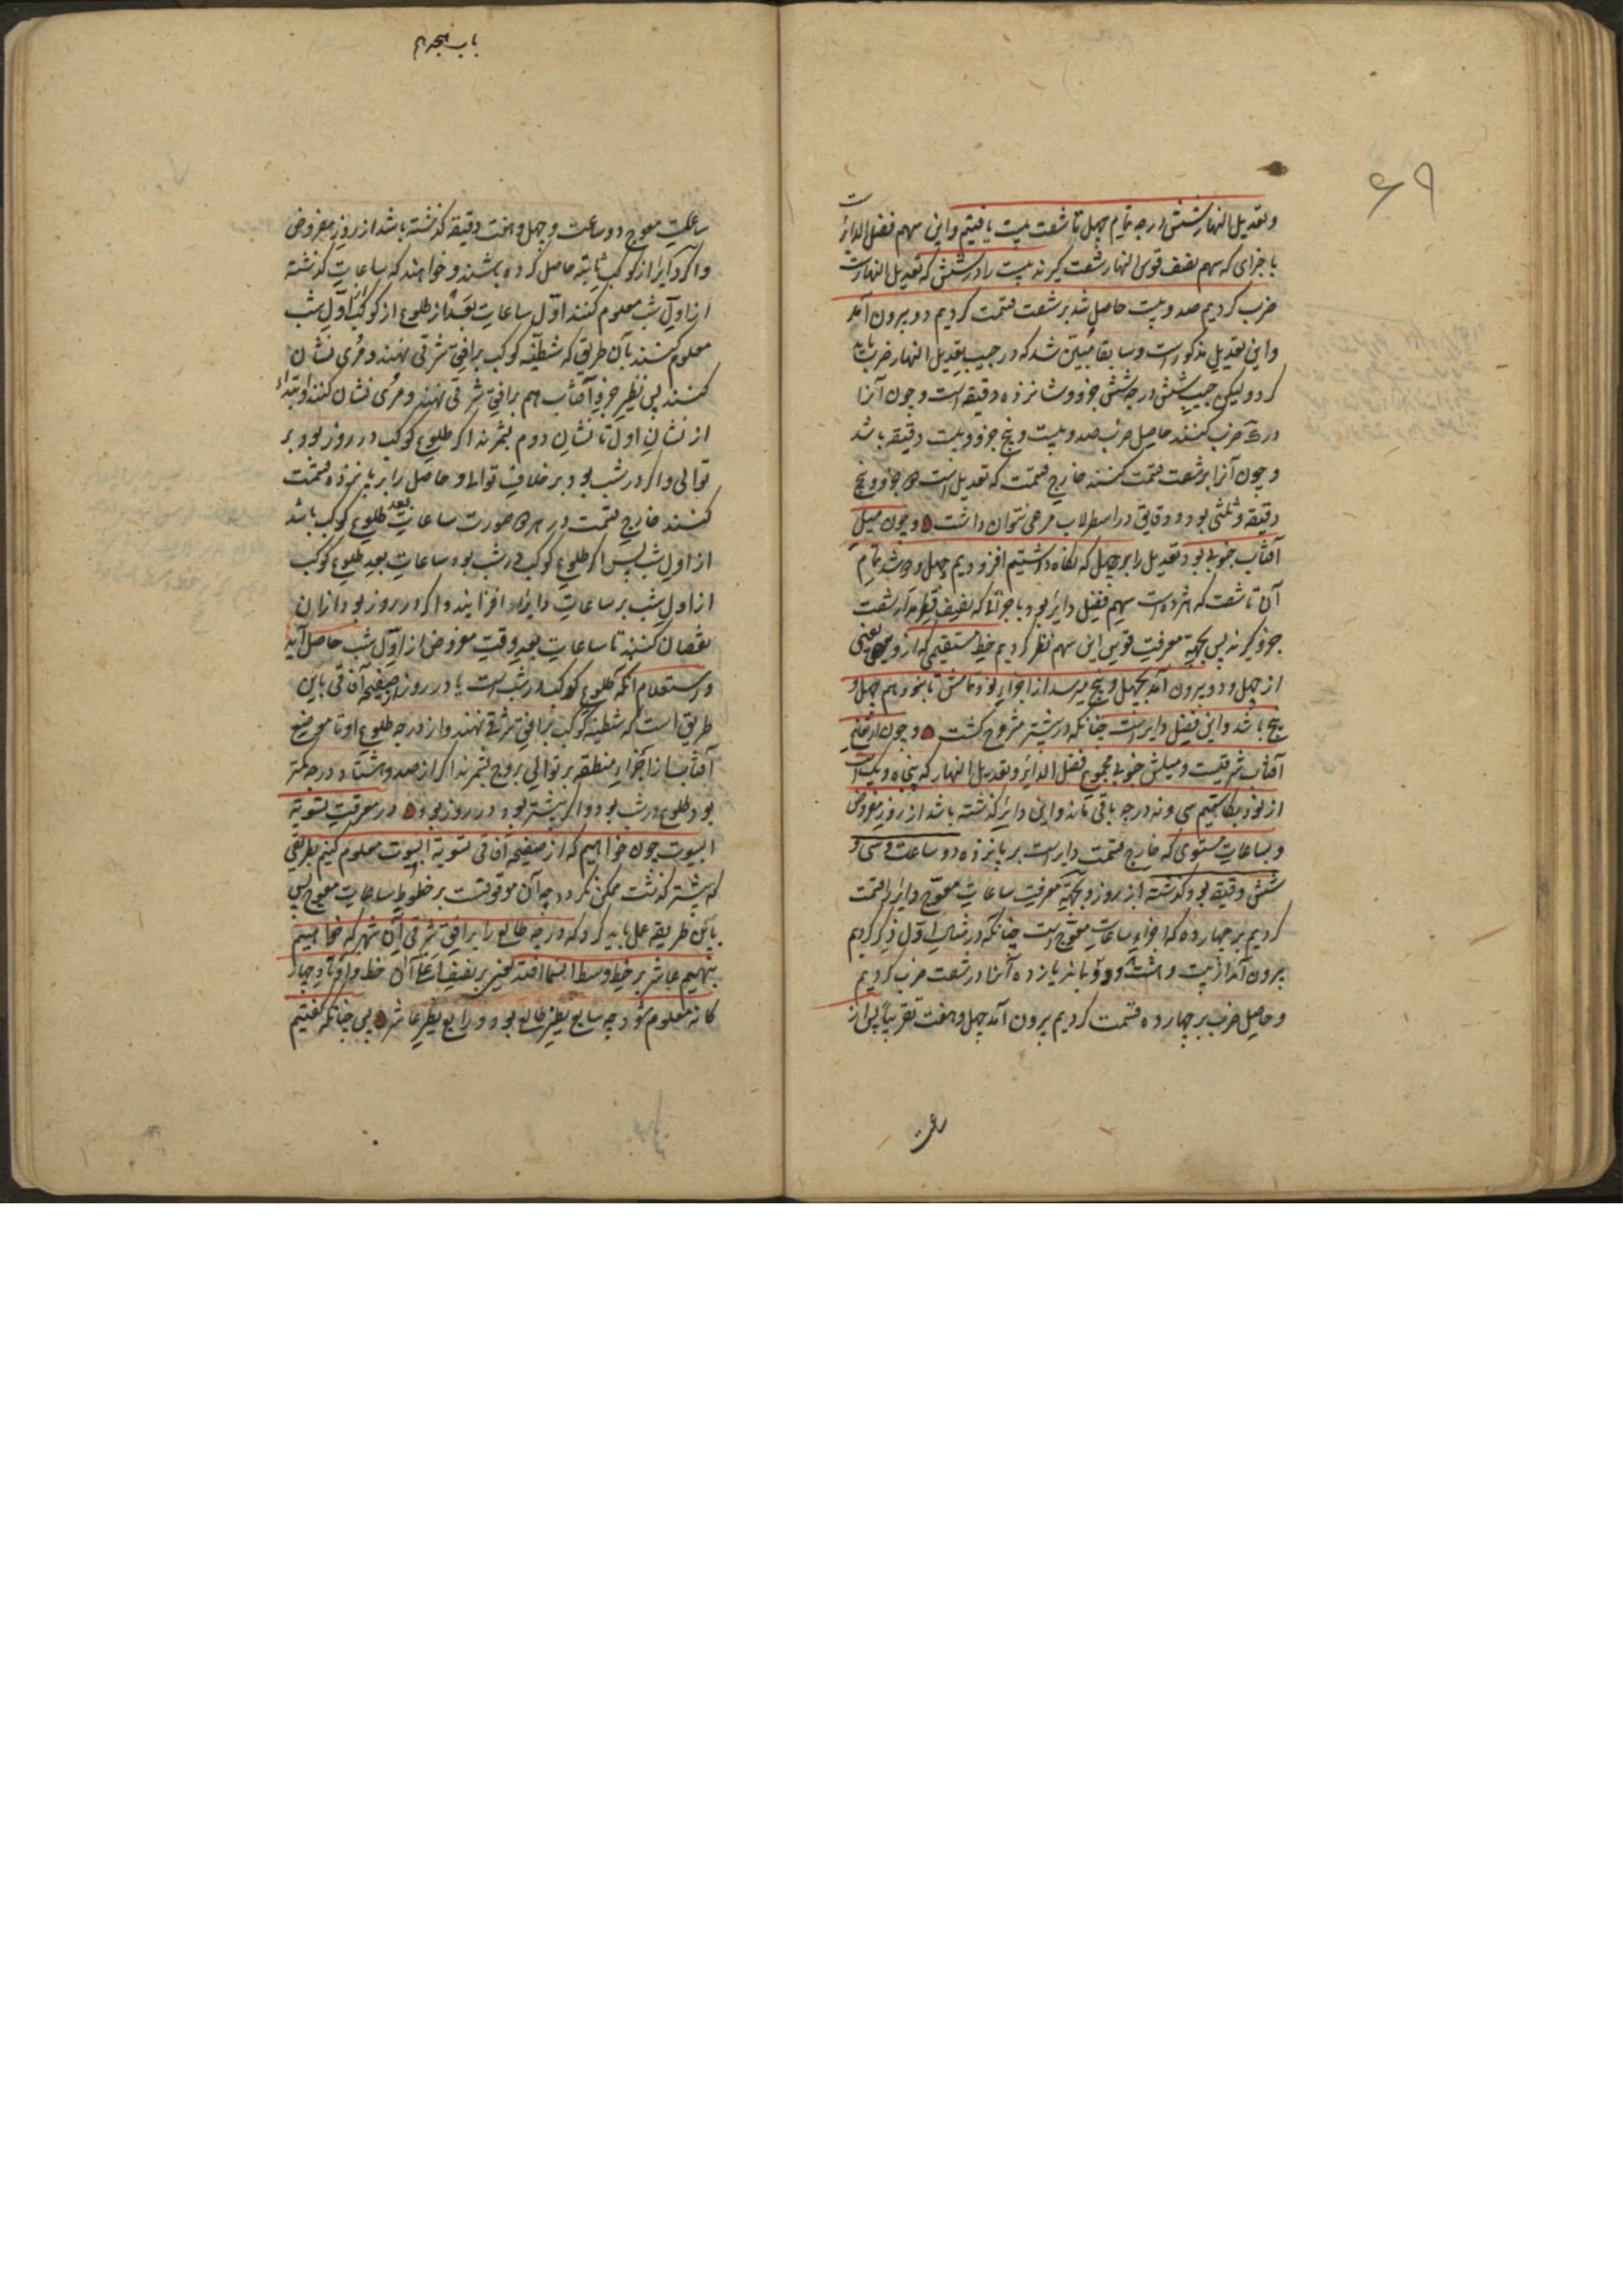 ۶۹
وتعدیل النهار شش درجه تمام چهل تا شصت بیست یافتیم واین سهم فضل الدایرست
باجزای که سهم نصف قوس النهار شصت گیرند بیست را در شش که تعدیل النهارست
ضرب کردیم صد و بیست حاصل شد بر شصت قسمت کردیم دو بیرون آمد
واین تعدیل مذکورست وسابقا مبیّن شد که در جیب تعدیل النهار ضرب باید
کرد ولیکن جیب شش درجه شش جزو وشانزده دقیقه است و چون آنرا
در ک ضرب کنند حاصل ضرب صد و بیست و پنج جزو و بیست دقیقه باشد
و چون آنرا بر شصت قسمت کنند خارج قسمت که تعدیل است دو جزو و پنج
دقیقه و ثلثی بود و دقایق در اسطرلاب مرعی نتوان داشت و چون میل
آفتاب جنوبی بود تعدیل را بر چهل که نگاه داشتیم افزودیم چهل و دو شد تمام
آن تا شصت که هژده است سهم فضل دایر بود باجزائی که نصف قطر مدار شصت
جزو گیرند پس بجهة معرفت قوس این سهم نظر کردیم خط مستقیمی که از یعنی
از چهل و دو بیرون آمد بچهل و پنج میرسد از اجزاء نود تمامش تا نود هم چهل و
پنج باشد واین فضل دایرست چنانکه در پیشتر مشروح گشت و چون ارتفاع
آفتاب شرقیست ومیلش جنوبی مجموع فضل الدایر وتعدیل النهار که پنجاه ویک است
از نود بکاستیم سی ونه درجه باقی ماند واین دایر گذشته باشد از روز مفروض
وبساعات مستوی که خارج قسمت دایرست بر پانزده دو ساعت وسی و
شش دقیقه بود گذشته از روز وبجهة معرفت ساعات معوّج دایر را قسمت
کردیم بر چهارده که اجزاء ساعات معوّج است چنانکه در مثال اول ذکر کردیم
بیرون آمد از بیست و هشت دو و بماند یازده آنرا در شصت ضرب کردیم
وحاصل ضرب بر چهارده قسمت کردیم بیرون آمد چهل وهفت تقریباً پس از
ساعت
باب هجدهم
ساعات معوج دو ساعت و چهل و هفت دقیقه گذشته باشد از روز مفروض
واگر دایر از کوکب ثابته حاصل کرده باشند و خواهند که ساعات گذشته
از اول شب معلوم کنند اوّل ساعات بعد از طلوع از کوکب از اوّل شب
معلوم کنند بآن طریق که شطیّه کوکب بر افق شرقی نهند و مُری نشان
کنند پس نظیر جزو آفتاب هم بر افق شرقی نهند و مری نشان کنند وابتداء
از نشان اول تا نشان دوم بشمرند اگر طلوع کوکب در روز بود بر
توالی واگر در شب بود بر خلاف توالی و حاصل را بر پانزده قسمت
کنند خارج قسمت در هر دو صورت ساعات بعد طلوع کوکب باشد
از اول شب پس اگر طلوع کوکب در شب بود ساعات بعد طلوع کوکب
از اول شب بر ساعات دایر افزایند واگر در روز بود ازان
نقصان کنند تا ساعات بعد وقت مفروض از اوّل شب حاصل آید
واستعلام آنکه طلوع کوکب در شب است یا در روز از صفیحه آفاقی باین
طریق است که شطیه کوکب بر افق شرقی نهند واز درجه طلوع او تا موضع
آفتاب از اجزاء منطقه بر توالی بروج بشمرند اگر از صد و هشتاد درجه کمتر
بود طلوع در شب بود واگر بیشتر بود در روز بود در معرفت تسویة
البیوت چون خواهیم که از صفیحه آفاقی تسویة البیوت معلوم کنیم بطریقی
که پیشتر گذشت ممکن نگردد چه آن موقوفست بر خطوط ساعات معوج پس
باین طریقه عمل باید کرد که درجه طالع را بر افق شرقی آن شهر که خواهیم
بنهیم عاشر بر خط وسط السما افتد یعنی بر نصف اعلی آن خط و اوتاد چهار
گانه معلوم شود چه سابع نظیر طالع بود و رابع نظیر عاشر پس چنانکه گفتیم